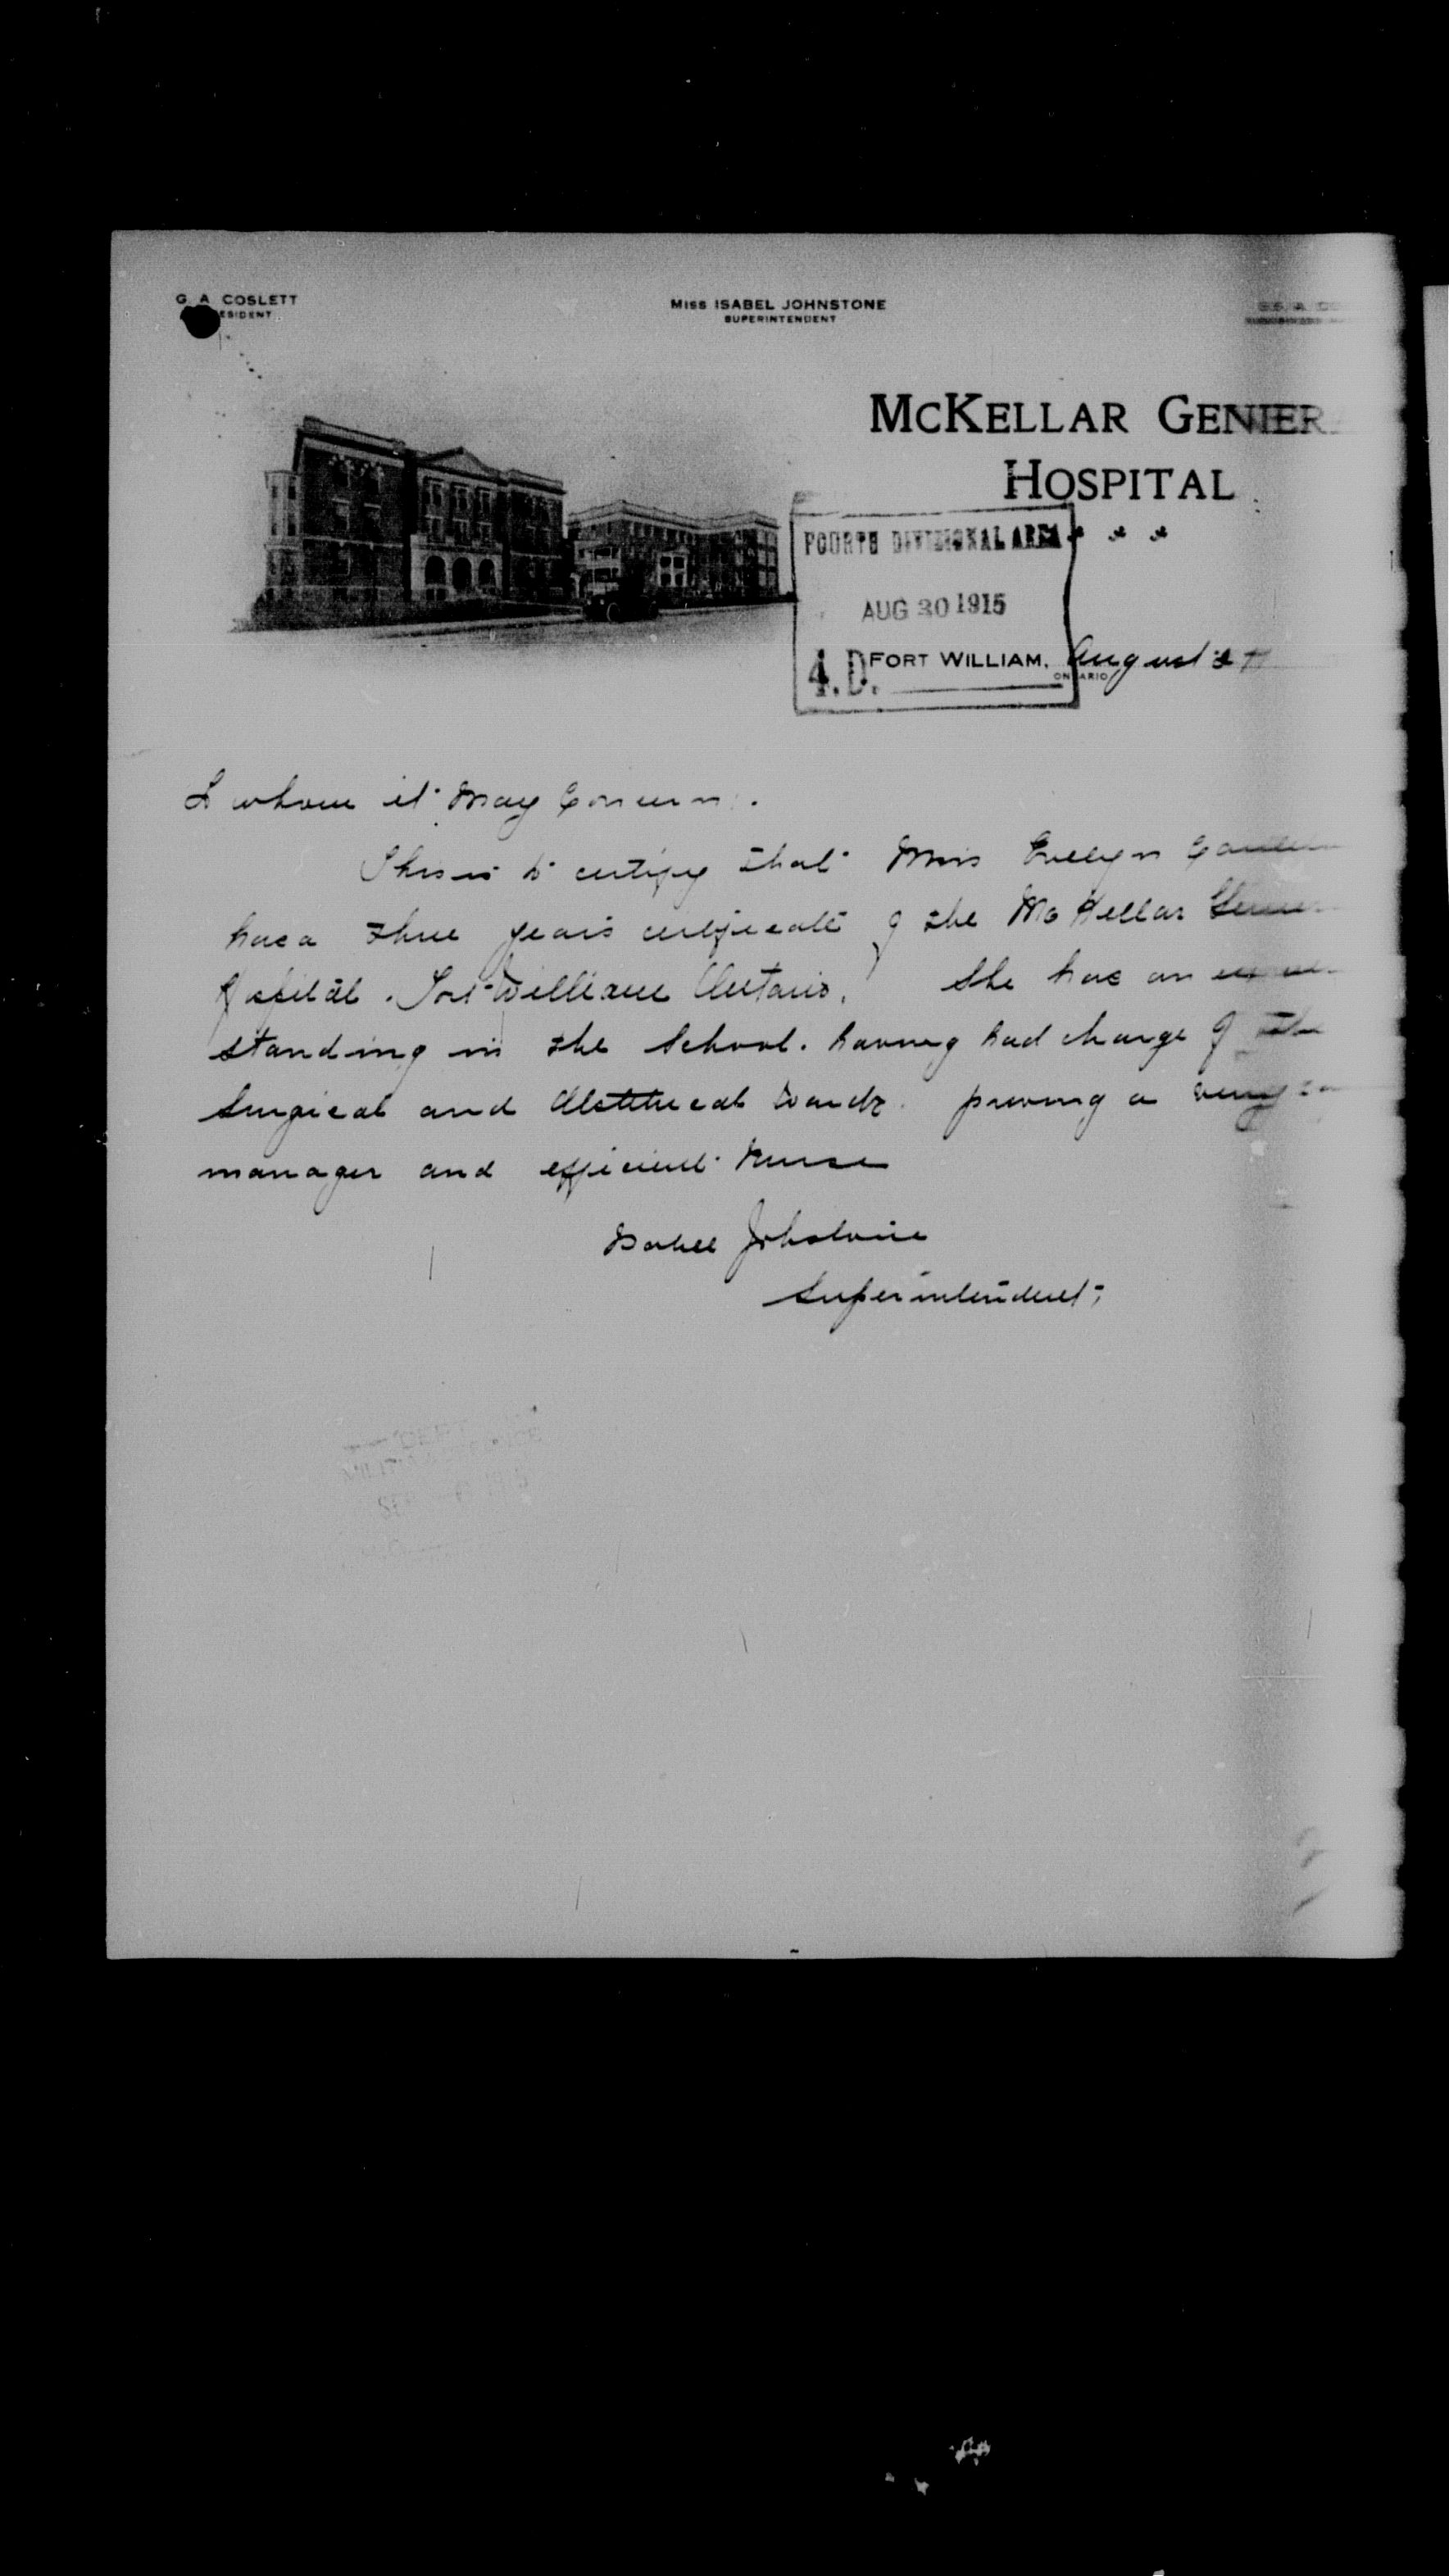 G. A. COSLETT
MISS ISABEL JOHNSTONE
SUPERINTENDENT
MCKELLAR GENER
HOSPITAL
FOURTH DIVISIONAL AREA
AUG 30 1915
4.D.
FORT WILLIAM, ONTARIO August
To whom it may Concern.
This is to certify that Miss Evelyn
has a three years certificate of the McKellar
Hospital. Fort William Ontario. She has an
standing in the School. having had charge of the
Surgical and Obstetrical wards. proving a very
manager and efficient nurse
Isabel Johnstone
Superintendent.
DEPT